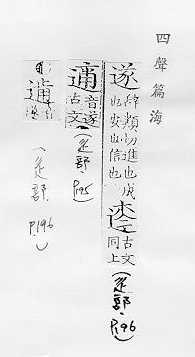 四聲篇海
遂 辭類切進也成也安也信也 古文同上（辵部，P.196）
音遂古文（辵部，P.195）
（辵部，P.196）